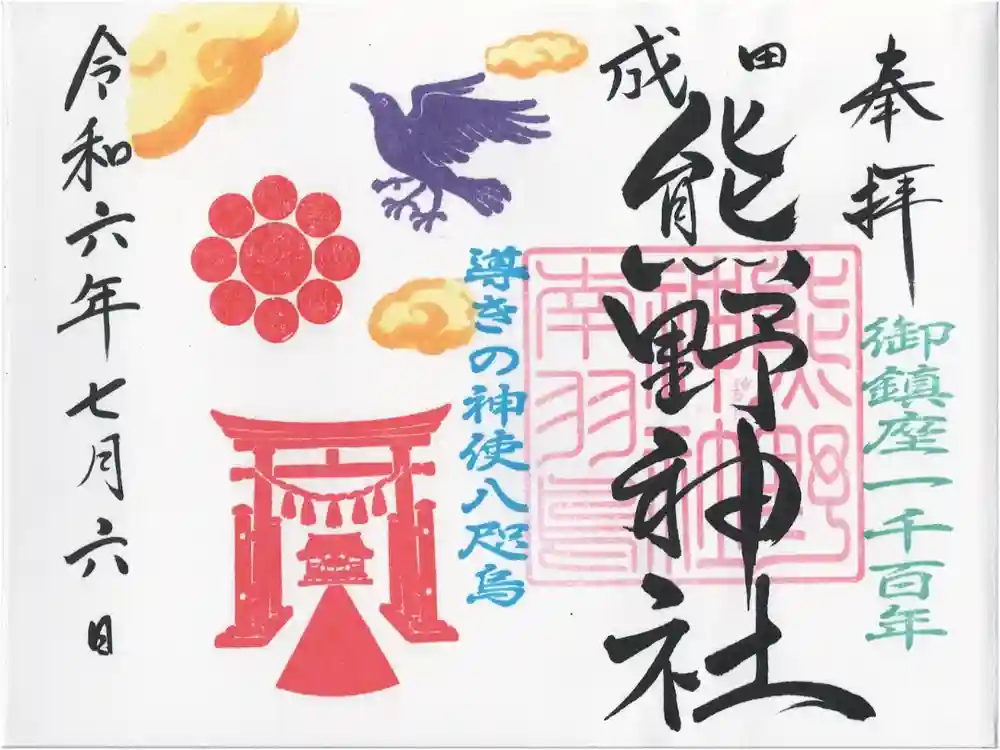 奉拝
御鎮座一千百年
成田
熊野神社
熊野
神社
南羽鳥
導きの神使八咫烏
令和六年七月六日